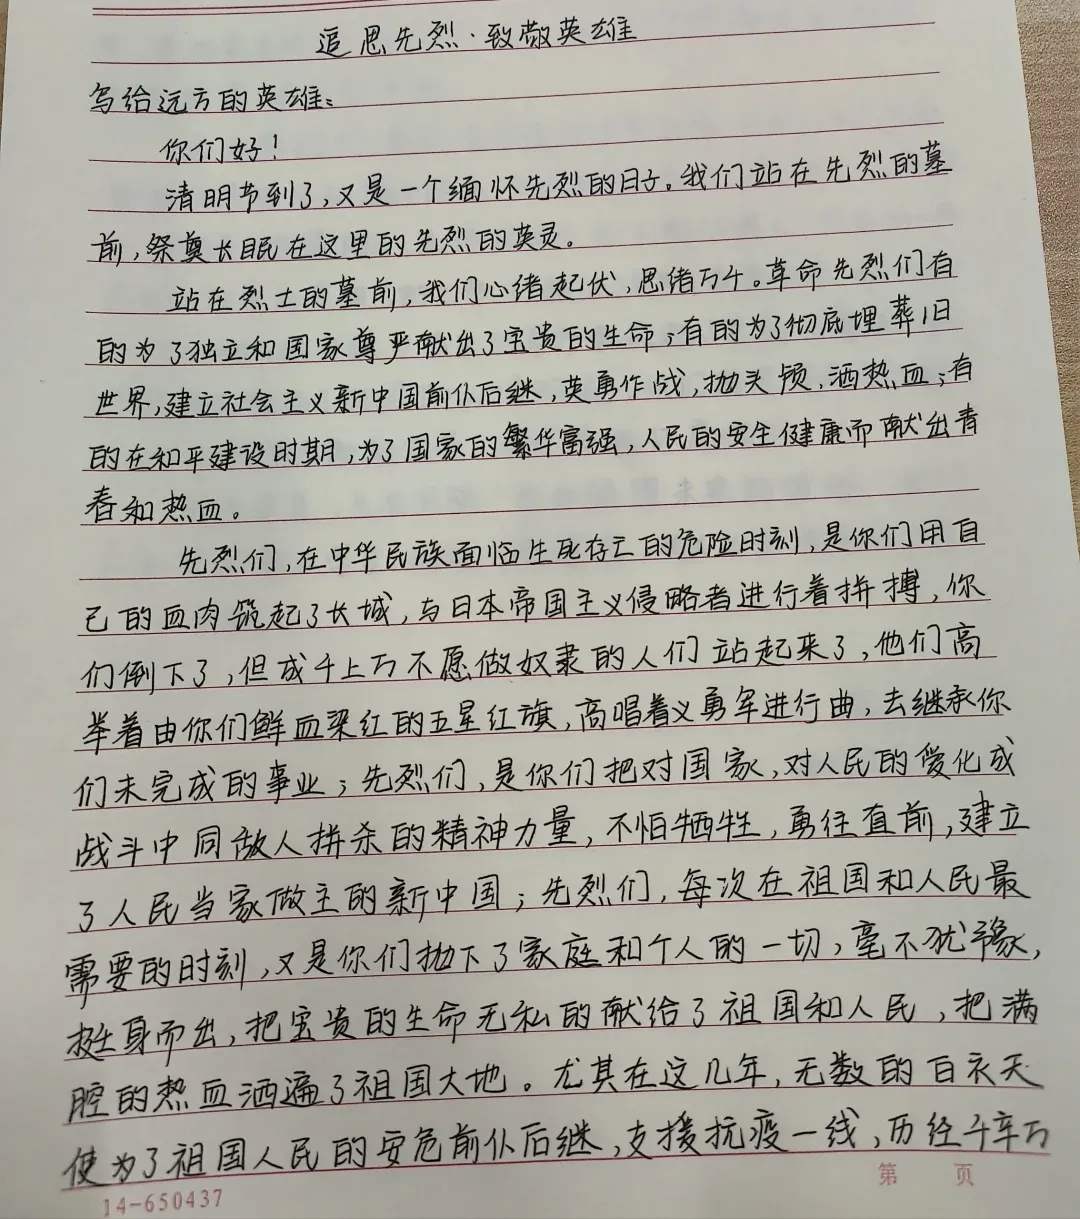 追思先烈·致敬英雄
写给远方的英雄:
你们好!
清明节到了,又是一个缅怀先烈的日子。我们站在先烈的墓
前,祭奠长眠在这里的先烈的英灵。
站在烈士的墓前,我们心绪起伏,思绪万千。革命先烈们有
的为了独立和国家尊严献出了宝贵的生命;有的为了彻底埋葬旧
世界,建立社会主义新中国前仆后继,英勇作战,抛头颅,洒热血;有
的在和平建设时期,为了国家的繁华富强,人民的安全健康而献出青
春和热血。
先烈们,在中华民族面临生死存亡的危险时刻,是你们用自
己的血肉筑起了长城,与日本帝国主义侵略者进行着拼搏,你
们倒下了,但成千上万不愿做奴隶的人们站起来了,他们高
举着由你们鲜血染红的五星红旗,高唱着义勇军进行曲,去继承你
们未完成的事业;先烈们,是你们把对国家,对人民的爱化成
战斗中同敌人拼杀的精神力量,不怕牺牲,勇往直前,建立
了人民当家做主的新中国;先烈们,每次在祖国和人民最
需要的时刻,又是你们抛下了家庭和个人的一切,毫不犹豫,
挺身而出,把宝贵的生命无私的献给了祖国和人民,把满
腔的热血洒遍了祖国大地。尤其在这几年,无数的白衣天
使为了祖国人民的安危前仆后继,支援抗疫一线,历经千辛万
第 页
14-650437